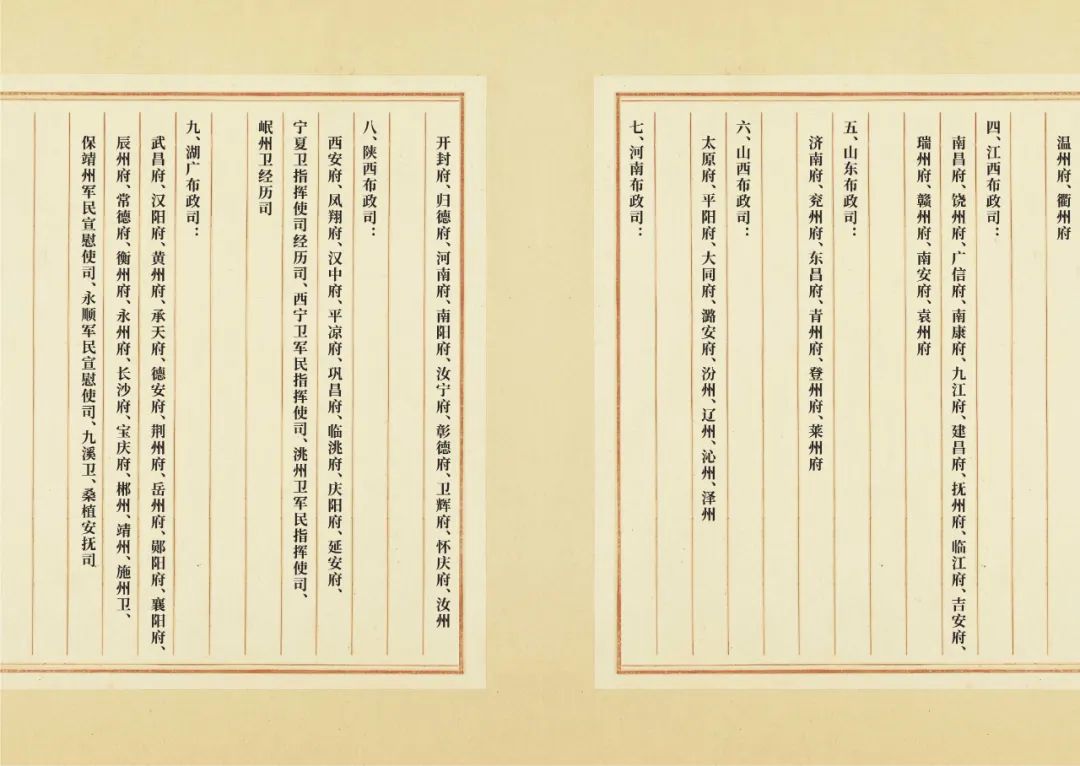 温州府、衢州府
四、江西布政司：
南昌府、饶州府、广信府、南康府、九江府、建昌府、抚州府、临江府、吉安府、
瑞州府、赣州府、南安府、袁州府
五、山东布政司：
济南府、兖州府、东昌府、青州府、登州府、莱州府
六、山西布政司：
太原府、平阳府、大同府、潞安府、汾州、辽州、沁州、泽州
七、河南布政司：
开封府、归德府、河南府、南阳府、汝宁府、彰德府、卫辉府、怀庆府、汝州
八、陕西布政司：
西安府、凤翔府、汉中府、平凉府、巩昌府、临洮府、庆阳府、延安府、
宁夏卫指挥使司经历司、西宁卫军民指挥使司、洮州卫军民指挥使司、
岷州卫经历司
九、湖广布政司：
武昌府、汉阳府、黄州府、承天府、德安府、荆州府、岳州府、郧阳府、襄阳府、
辰州府、常德府、衡州府、永州府、长沙府、宝庆府、郴州、靖州、施州卫、
保靖州军民宣慰使司、永顺军民宣慰使司、九溪卫、桑植安抚司